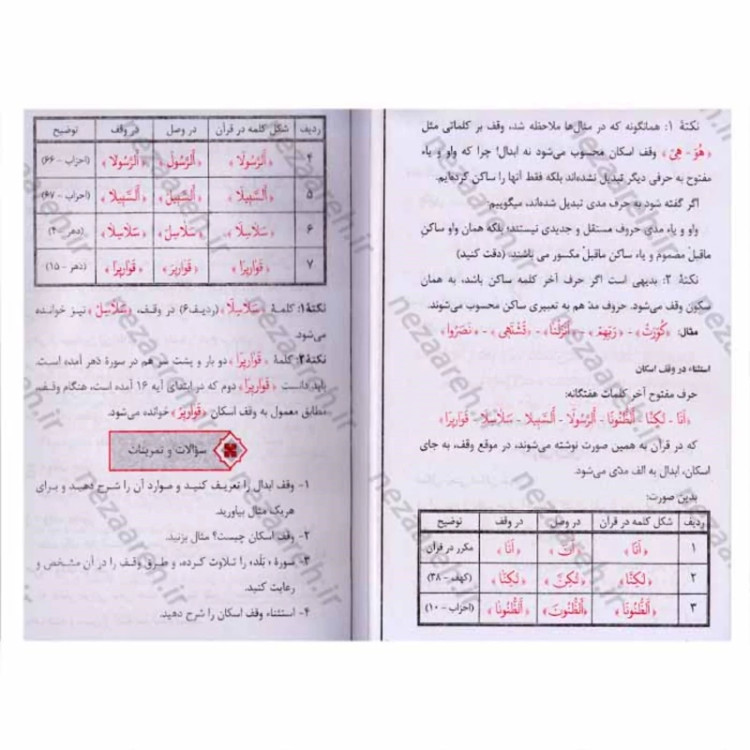 نکتهٔ ۱: همانگونه که در مثال‌ها ملاحظه شد، وقف بر کلماتی مثل
﴿هُوَ - هِیَ﴾ وقف اسکان محسوب می‌شود نه ابدال! چرا که واو و یاء
مفتوح به حرفی دیگر تبدیل نشده‌اند بلکه فقط آنها را ساکن کرده‌ایم.
اگر گفته شود به حرف مدی تبدیل شده‌اند، میگوییم:
واو و یاء مدی حروف مستقل و جدیدی نیستند؛ بلکه همان واو ساکنِ
ماقبلْ مضموم و یاء ساکن ماقبلْ مکسور می باشند. (دقت کنید)
نکتهٔ ۲: بدیهی است اگر حرف آخر کلمه ساکن باشد، به همان
سکون وقف می‌شود. حروف مدّ هم به تعبیری ساکن محسوب می‌شوند.
مثال: ﴿کُوِّرَتْ - رَبِّهِمْ - أَنزَلْنَا - تَشْتَهِی - نَصَرُوا﴾
استثناء در وقف اسکان
حرف مفتوح آخر کلمات هفتگانه:
﴿أَنَا - لٰکِنَّا - ٱلظُّنُونَا - ٱلرَّسُولَا - ٱلسَّبِیلَا - سَلَاسِلَا - قَوَارِیرَا﴾
که در قرآن به همین صورت نوشته می‌شوند، در موقع وقف، به جای
اسکان، ابدال به الف مدّی می‌شود.
بدین صورت:
ردیف | شکل کلمه در قرآن | در وصل | در وقف | توضیح
۱ | ﴿أَنَا﴾ | ﴿أَنَ﴾ | ﴿أَنَا﴾ | مکرر در قرآن
۲ | ﴿لٰکِنَّا﴾ | ﴿لٰکِنَّ﴾ | ﴿لٰکِنَّا﴾ | (کهف - ۳۸)
۳ | ﴿ٱلظُّنُونَا﴾ | ﴿ٱلظُّنُونَ﴾ | ﴿ٱلظُّنُونَا﴾ | (احزاب - ۱۰)
ردیف | شکل کلمه در قرآن | در وصل | در وقف | توضیح
۴ | ﴿ٱلرَّسُولَا﴾ | ﴿ٱلرَّسُولَ﴾ | ﴿ٱلرَّسُولَا﴾ | (احزاب - ۶۶)
۵ | ﴿ٱلسَّبِیلَا﴾ | ﴿ٱلسَّبِیلَ﴾ | ﴿ٱلسَّبِیلَا﴾ | (احزاب - ۶۷)
۶ | ﴿سَلَاسِلَا﴾ | ﴿سَلَاسِلَ﴾ | ﴿سَلَاسِلَا﴾ | (دهر - ۴)
۷ | ﴿قَوَارِیرَا﴾ | ﴿قَوَارِیرَ﴾ | ﴿قَوَارِیرَا﴾ | (دهر - ۱۵)
نکتهٔ ۱: کلمهٔ ﴿سَلَاسِلَا﴾ (ردیف۶) در وقف، ﴿سَلَاسِلْ﴾ نیز خوانده
می‌شود.
نکتهٔ ۲: کلمهٔ ﴿قَوَارِیرَا﴾ دو بار و پشت سر هم در سورهٔ دهر آمده است.
باید دانست ﴿قَوَارِیرَا﴾ دوم که در ابتدای آیه ۱۶ آمده است، هنگام وقف،
مطابق معمول به وقف اسکان ﴿قَوَارِیرْ﴾ خوانده می‌شود.
سؤالات و تمرینات
۱- وقف ابدال را تعریف کنید و موارد آن را شرح دهید و برای
هریک مثال بیاورید.
۲- وقف اسکان چیست؟ مثال بزنید.
۳- سورهٔ «بَلَد» را تلاوت کرده، و طرق وقف را در آن مشخص و
رعایت کنید.
۴- استثناء وقف اسکان را شرح دهید.
nezaareh.ir